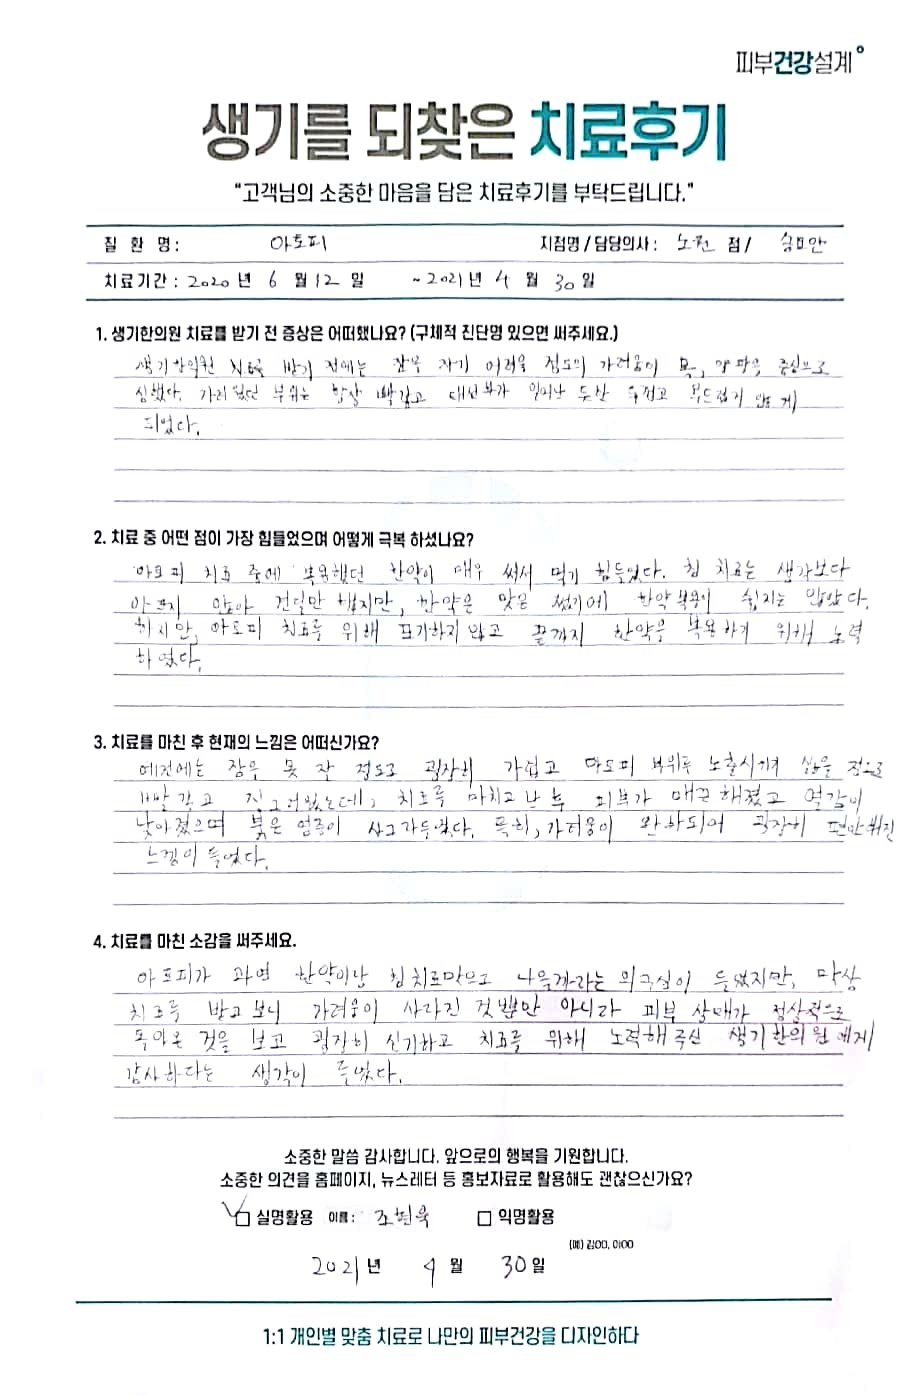 피부건강설계
생기를 되찾은 치료후기
"고객님의 소중한 마음을 담은 치료후기를 부탁드립니다."
질 환 명 : 아토피 지점명 / 담당의사 : 노원 점 /
치료기간 : 2020 년 6 월 12 일 ~ 2021 년 4 월 30 일
1. 생기한의원 치료를 받기 전 증상은 어떠했나요? (구체적 진단명 있으면 써주세요.)
생기한의원 치료 받기 전에는 잠을 자기 어려울 정도의 가려움이 목, 양 팔을 중심으로
심했다. 가려웠던 부위는 항상 빨갛고 태선화가 일어난 듯한 두껍고 부드럽지 않게
되었다.
2. 치료 중 어떤 점이 가장 힘들었으며 어떻게 극복 하셨나요?
아토피 치료 중에 복용했던 한약이 매우 써서 먹기 힘들었다. 침 치료는 생각보다
아프지 않아 견딜만 했지만, 한약은 맛은 썼기에 한약 복용이 쉽지는 않았다.
하지만, 아토피 치료를 위해 포기하지 않고 끝까지 한약을 복용하기 위해 노력
하였다.
3. 치료를 마친 후 현재의 느낌은 어떠신가요?
예전에는 잠을 못 잘 정도로 굉장히 가렵고 아토피 부위를 노출시키기 싫을 정도로
빨갛고 징그러웠는데, 치료를 마치고 난 후 피부가 매끈해졌고 열감이
낮아졌으며 붉은 염증이 사그라들었다. 특히, 가려움이 완화되어 굉장히 편안해진
느낌이 들었다.
4. 치료를 마친 소감을 써주세요.
아토피가 과연 한약이랑 침 치료만으로 나을까라는 의구심이 들었지만, 막상
치료를 받고 보니 가려움이 사라진 것 뿐만 아니라 피부 상태가 정상적으로
돌아온 것을 보고 굉장히 신기하고 치료를 위해 노력해 주신 생기한의원에게
감사하다는 생각이 들었다.
소중한 말씀 감사합니다. 앞으로의 행복을 기원합니다.
소중한 의견을 홈페이지, 뉴스레터 등 홍보자료로 활용해도 괜찮으신가요?
실명활용 이름 : 조현욱 익명활용
(예) 김OO, 이OO
2021 년 4 월 30 일
1:1 개인별 맞춤 치료로 나만의 피부건강을 디자인하다